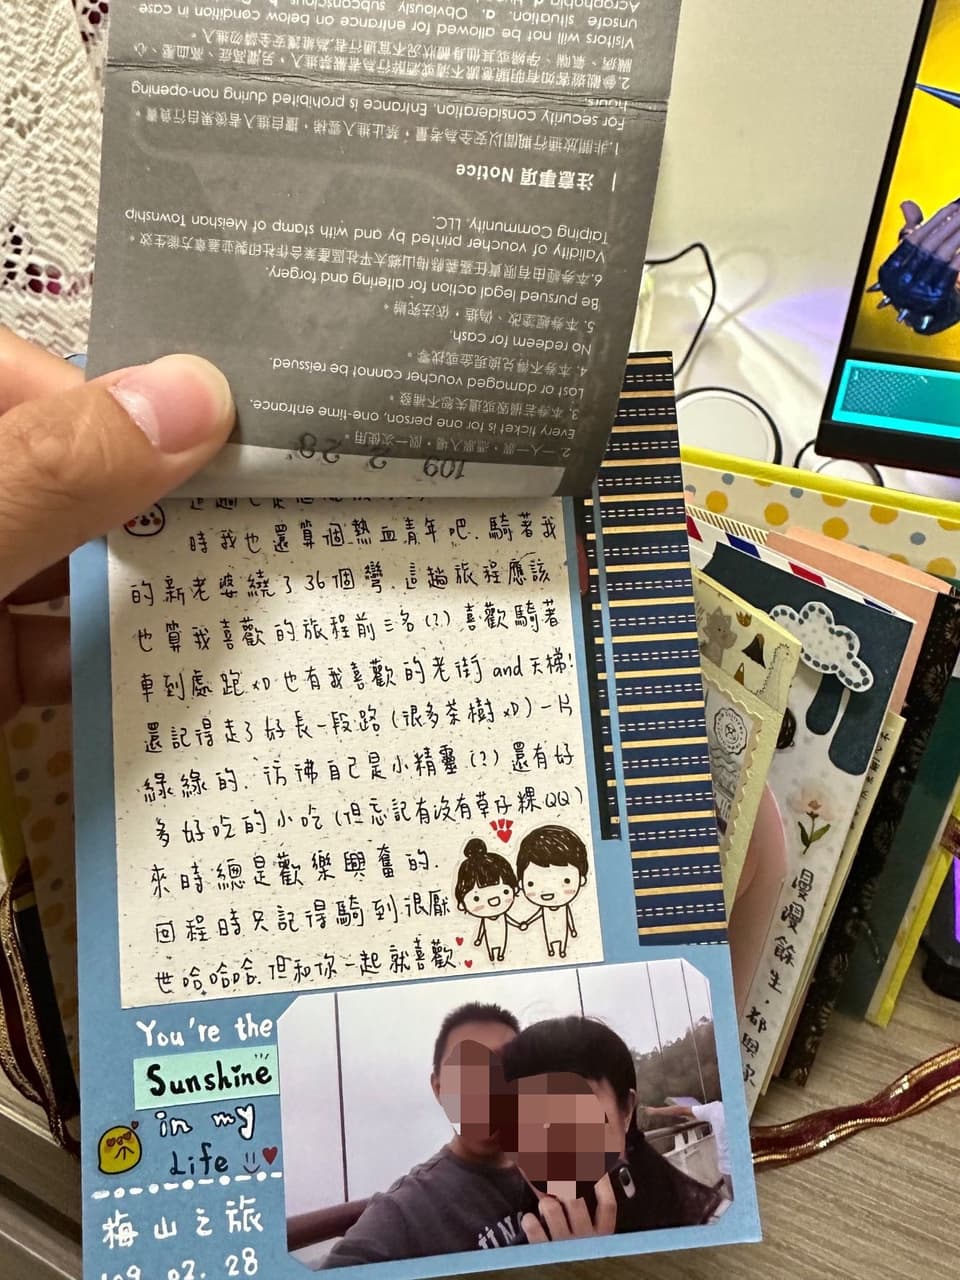 109 2 28
2. 一人一票，憑票入場，限一次使用。
Every ticket is for one person, one-time entrance.
3. 本券若損毀或遺失恕不補發。
Lost or damaged voucher cannot be reissued
4. 本券不得兌換現金或找零。
No redeem for cash.
5. 本券經塗改、偽造，依法究辦。
Be pursued legal action for altering and forgery.
6.本券經由有限責任嘉義縣梅山鄉太平社區產業合作社印製並蓋章方能生效。
Validity of voucher printed by and with stamp of Meishan Township
Taiping Community, LLC.
注意事項 Notice
1.非開放通行期間以安全為考量，禁止進入雲梯，擅自進入者後果自行負責。
For security consideration. Entrance is prohibited during non-opening
hours.
2.參觀遊客如有明顯意識不清或酒醉行為者嚴禁進入，另，懼高症、高血壓、心
臟病、氣喘、孕婦或其他身體狀況不宜通行者，為維護安全請勿進入。
Visitors will not be allowed for entrance on below condition in case
unsafe situation. a. Obviously subconscious
Acrophobia
時我也還算個熱血青年吧.騎著我
的新老婆繞了36個彎.這趟旅程應該
也算我喜歡的旅程前三名(?)喜歡騎著
車到處跑xD也有我喜歡的老街and天梯!
還記得走了好長一段路(很多茶樹xD)一片
綠綠的.彷彿自己是小精靈(?)還有好
多好吃的小吃(但忘記有沒有草仔粿QQ)
來時總是歡樂興奮的.
回程時只記得騎到很厭
世哈哈哈.但和你一起就喜歡
You're the
Sunshine
in my
Life
梅山之旅
109.02.28
漫漫餘生.都與你